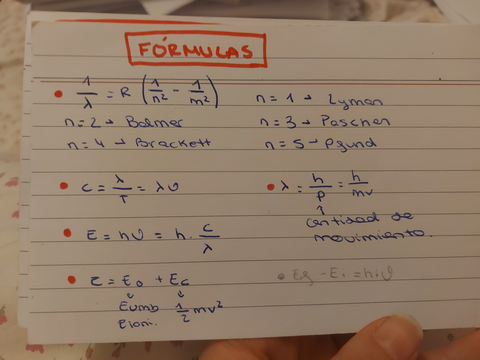 FÓRMULAS
• 1/λ = R (1/n² - 1/m²)
n = 1 → Lyman
n = 2 → Balmer
n = 3 → Paschen
n = 4 → Brackett
n = 5 → Pfund
• c = λ/T = λν
• λ = h/p = h/mv
cantidad de
movimiento.
• E = hν = h · c/λ
• E = E₀ + Ec
Eumb
Eioni.
1/2 mv²
• Ef - Ei = h·ν